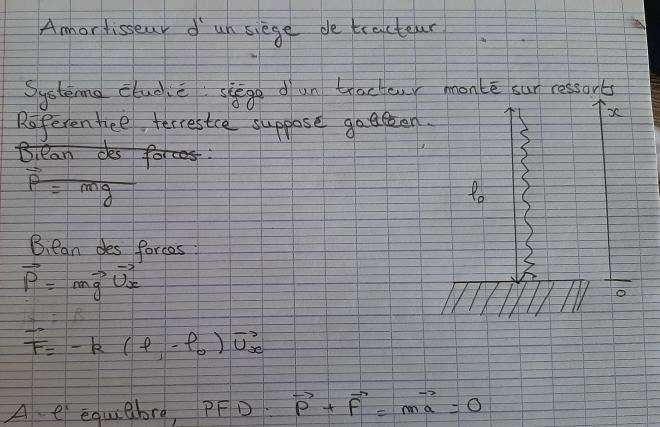 Amortisseur d'un siège de tracteur.
Système étudié : siège d'un tracteur monté sur ressorts
Référentiel terrestre supposé galiléen.
Bilan des forces :
P⃗ = mg
x
l₀
o
Bilan des forces :
P⃗ = mg⃗ U⃗x
F⃗ = -k (l - l₀) U⃗x
A l'équilibre, PFD : P⃗ + F⃗ = ma⃗ = 0